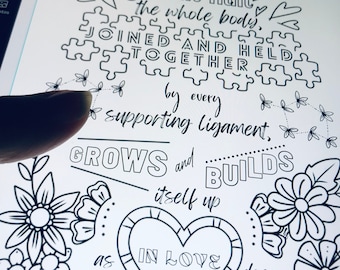 the whole body,
JOINED AND HELD
TOGETHER
by every
supporting ligament,
GROWS and BUILDS
itself up
as IN LOVE